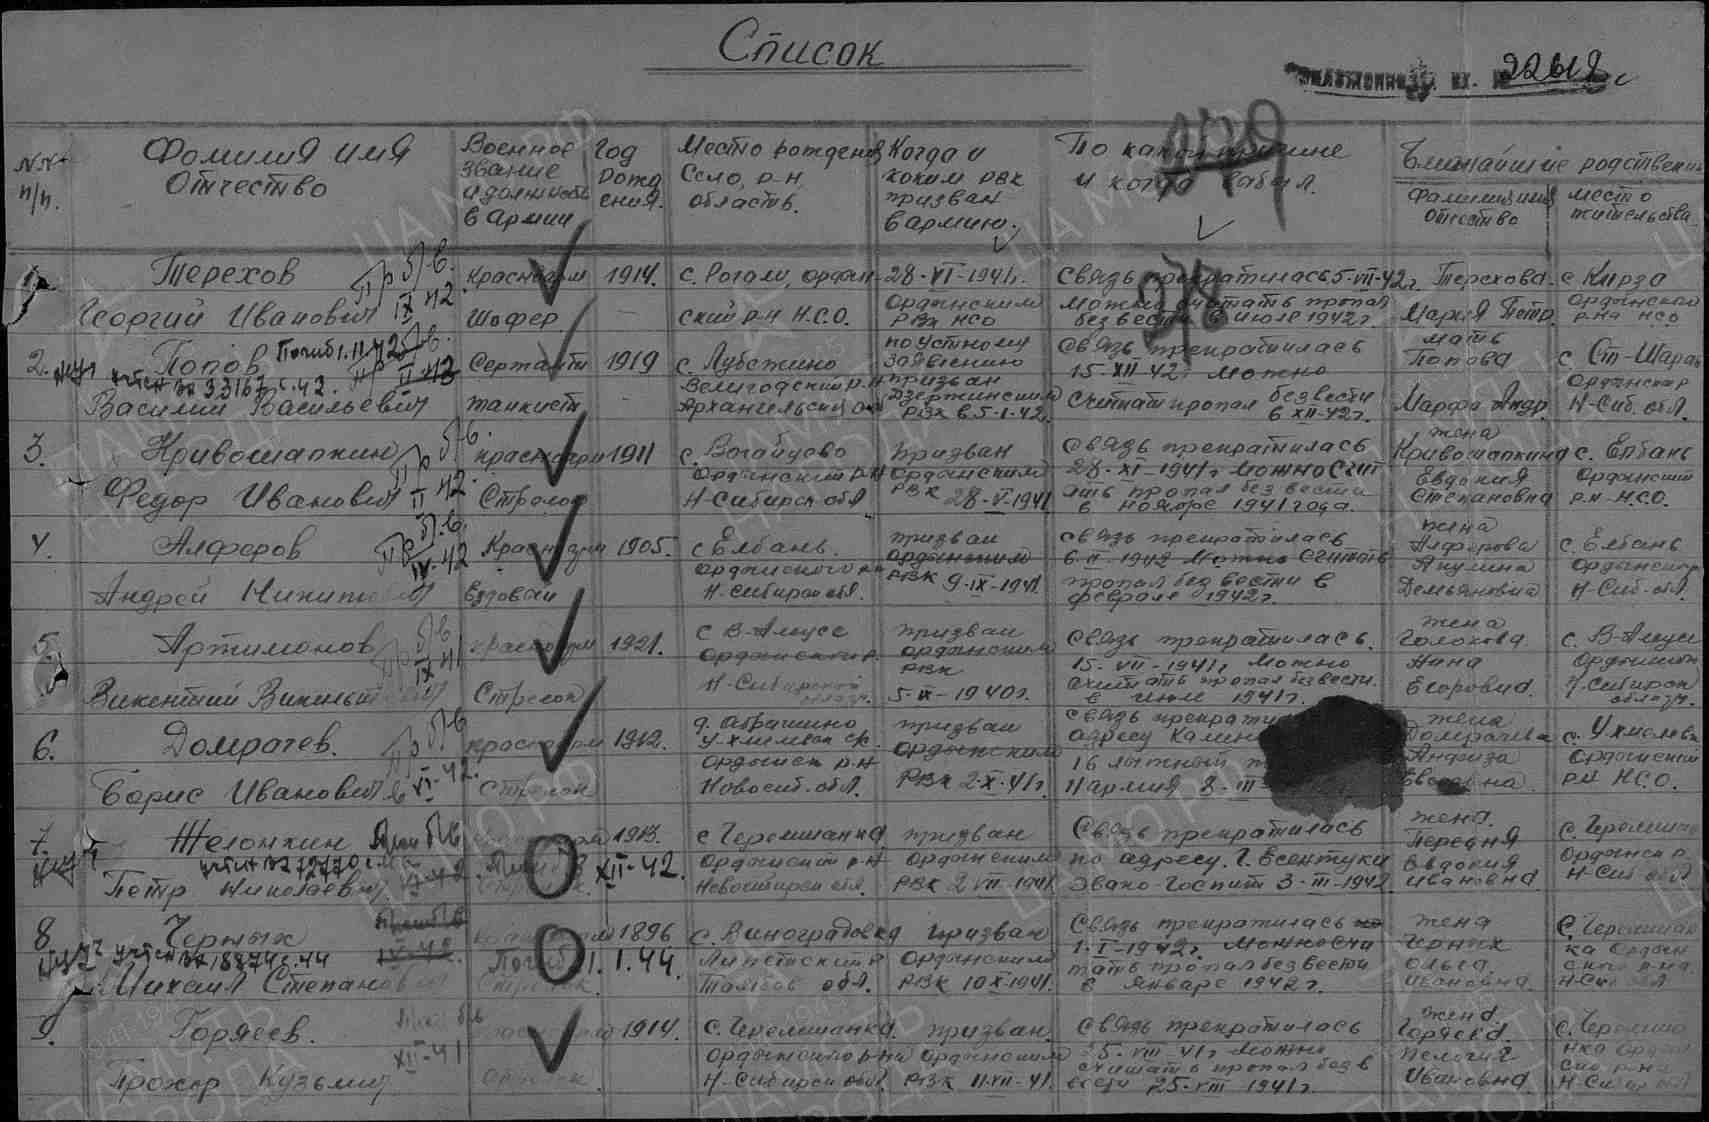 Список
22612с
№№ п/п.
Фамилия имя Отчество
Военное звание и должность в армии
Год рождения.
Место рождения Село, р-н, область.
Когда и каким РВК призван в армию.
По какой причине и когда выбыл.
Ближайшие родственники
Фамилия имя Отчество
место жительства
Терехов Георгий Иванович
Пр б/в. IX 42.
Красноарм шофер
1914.
с. Рогали, Ордынский р-н Н.С.О.
28-VI-1941г. Ордынским РВК НСО
Связь прекратилась 5-VII-42г. Можно считать пропал без вести в июле 1942г.
Терехова Мария Петр.
с Кирза Ордынского р-на НСО
2. Попов Василий Васильевич
Погиб 1.11.42
учтен вх 33167 с. 42.
Сержант танкист
1919
Архангельской обл
по устному заявлению призван Дзержинским РВК в 5-1-42.
Связь прекратилась 15-XII-42г Можно считат пропал без вести в XII-42г.
мать Попова Марфа Андр.
с Ст-Шарап Ордынск р Н-Сиб. обл.
3. Кривошапкин Федор Иванович
Пр б/в. II 42.
красноарм Стрелок
1911
с. Вагайцево Ордынский р-н Н-Сибирск обл
Призван Ордынский РВК 28-VI-1941
Связь прекратилась 28-XI-1941г Можно счит ать пропал без вести в ноябре 1941 года.
жена Кривошапкина Евдокия Степановна
с. Елбань Ордынский р-н Н.С.О.
4. Алферов Андрей Никитович
Пр б.в. IV-42
Красноарм Ездовой
1905.
с Елбань. Ордынского р-н Н-Сибирск обл.
призван Ордынским РВК 9-IX-1941.
Связь прекратилась 6-II-1942 Можно считать пропал без вести в феврале 1942г.
жена Алферова Акулина Демьяновна
с. Елбань Ордынск р Н-Сиб-обл.
5. Артимонов Викентий
Пр б/в IX 41
красноарм Стрелок
1921.
с В-Алеусс Ордынский р. Н-Сибирской
призван Ордынским РВК 5-IX-1940г.
Связь прекратилась. 15-VII-1941г Можно считать пропал без вести. в июле 1941г.
жена Голохова Нина Егоровна.
с. В-Алеусс Ордынский Н-Сибирск област.
6. Домрачев. Борис Иванович
Пр б/в VI-42.
красноарм Стрелок
1912.
д. Абрашино Ордынск р-н Новосиб. обл.
призван Ордынским РВК 2-X-41г.
Связь прекрати адресу Камен 16 лыжный Нармия 8-III-
жена Домрачева Анфиза
с. У хмелевк Ордынский р-н Н.С.О.
7. Желонкин Петр Николаевич
Проп б/в
Погиб XII-42.
1913.
с Черемшанка Ордынский р-н Новосибирск обл.
призван Ордынским РВК 2 VII-1941
Связь прекратилась по адресу. г. Есентуки Эвако-Госпит 3-III-1942
жена. Передня Евдокия Ивановна
с. Черемшан Ордынск р. Н-Сиб обл
8. Черных Михаил Степанович
Проп б/в IV-42.
учтен вх 18874 с. 44
Погиб 1.1.44.
1896
с. Виноградовка Липетский р Тамбов обл.
призван Ордынским РВК 10 X-1941.
Связь прекратилась 1-I-1942г. Можно счи тать пропал без вести в январе 1942г.
жена Черных Ольга Ивановна.
С Черемшан ка Ордын ского р-на. Н-Сиб обл
9. Горяев. Прохор Кузьмич
Проп б/в XII-41
1914.
с. Черемшанка. Ордынского р-на Н-Сибирск обл
призван Ордынским РВК 11-VII-41.
Связь прекратилась 25-VIII 41г Можно считать пропал без в вести 25-VIII 1941г.
жена. Горяева. Пелагия Ивановна
с. Черемша нка Ордын ско р-на Н-Сибир обл